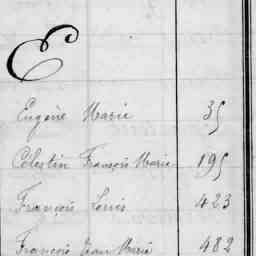 E
Eugène Marie 35
Célestin François Marie 195
François Louis 423
François Jean Marie 482